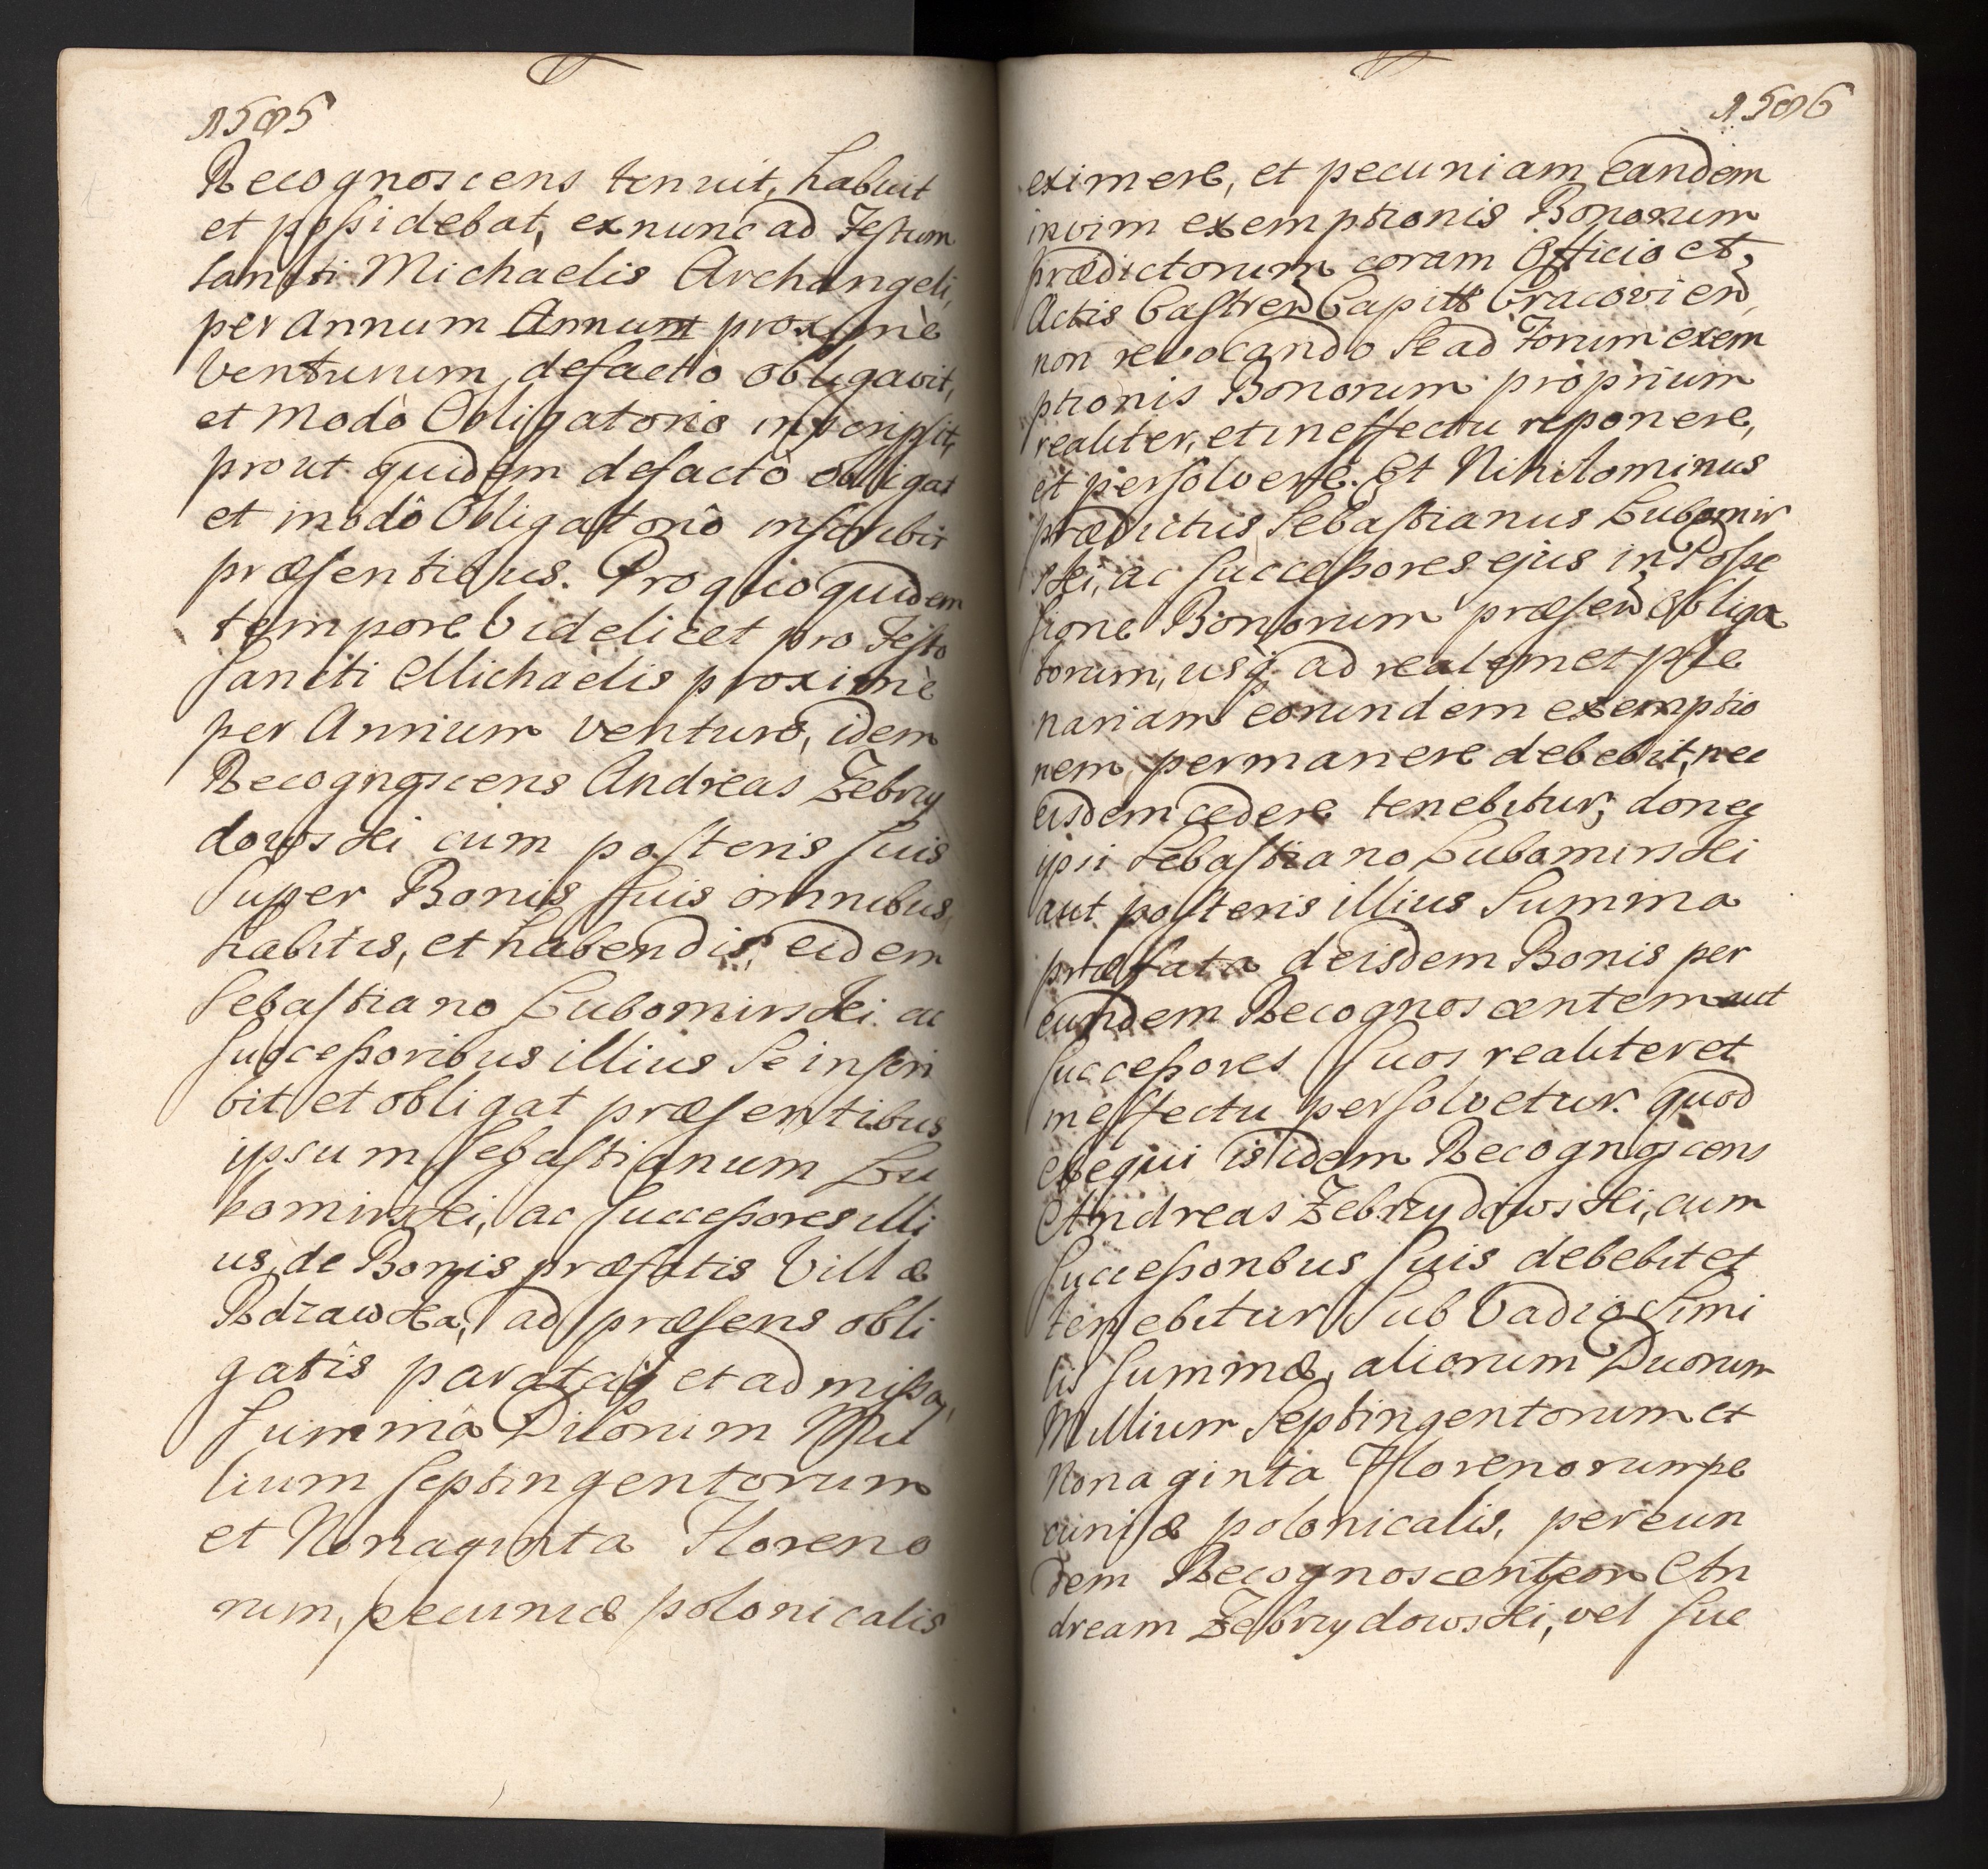 1585
Recognoscens tenuit, habuit
et poſsidebat, ex nunc ad Feſtum
Sancti Michaelis Archangeli,
per annum Annum proximè
Venturum, defactò obligavit,
et modò Obligatoriò inscripſit,
prout quidem defactò obligat
et modò Obligatoriò inſcribit
præſentibus. Pro quo quidem
tempore Videlicet pro Feſto
Sancti Michaelis proximè
per Annum venturo, idem
Recognoscens Andreas Zebrzy
dowski cum poſteris ſuis
Super Bonis ſuis omnibus
habitis, et habendis, eidem
Sebaſtiano Lubomirski ac
Succeſsoribus illius Se inſcri
bit et obligat præſentibus
ipsum Sebaſtianum Lu
bomirski, ac Succeſsores illi
us, de Bonis præfatis Villæ
Podzawka, ad præſens obli
gatis paratâ et admiſsa,
Summâ Duorum Mil
lium ſeptingentorum
et Nonaginta Floreno
rum, pecuniæ polonicalis
1586
eximere, et pecuniam eandem
in vim exemptionis Bonorum
prædictorum coram Officio et
Actis Caſtren Capitt Cracovien
non revocando Se ad Forum exem
ptionis Bonorum proprium
realiter, et in effectu reponere,
et perſolvere. Et Nihilominus
prædictus Sebaſtianus Lubomir
ski, ac Succeſsores ejus in Poſse
ſsione Bonorum præſen obliga
torum, usq ad realem et ple
nariam eorundem exemptio
nem permanere debebit, nec
eisdem cedere tenebitur, doneq
ipsi Sebaſtiano Lubomirski
aut poſteris illius Summa
præfata de iisdem Bonis per
eundem Recognoscentem aut
Succeſsores Suos realiter et
in effectu perſolvetur. quod
exequi is idem Recognoscens
Andreas Zebrzydowski, cum
Succeſsoribus Suis debebit et
tenebitur Sub Vadio Simi
lis Summæ, aliorum Duorum
Millium Septingentorum et
Nonaginta Florenorum pe
cuniæ polonicalis, per eun
dem Recognoscentem An
dream Zebrzydowski, vel Suc